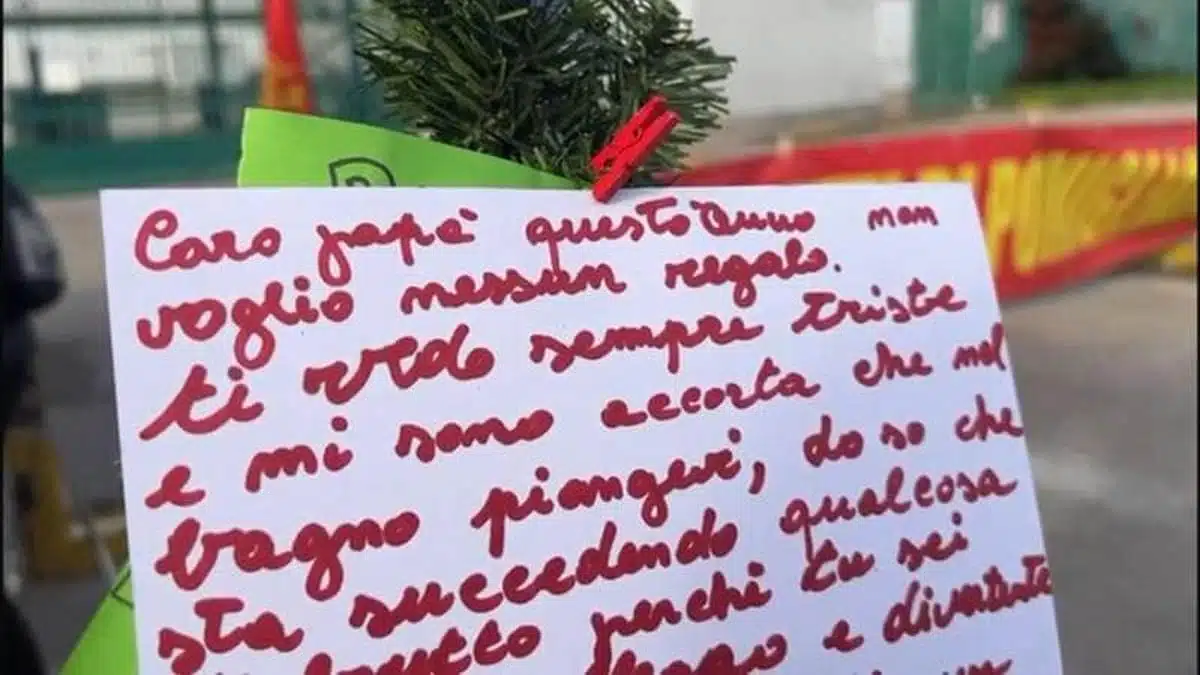 Caro papà questo anno non
voglio nessun regalo.
ti vedo sempre triste
e mi sono accorta che nel
bagno piangevi, lo so che
sta succedendo qualcosa
brutto perchè tu sei
e divertente
un